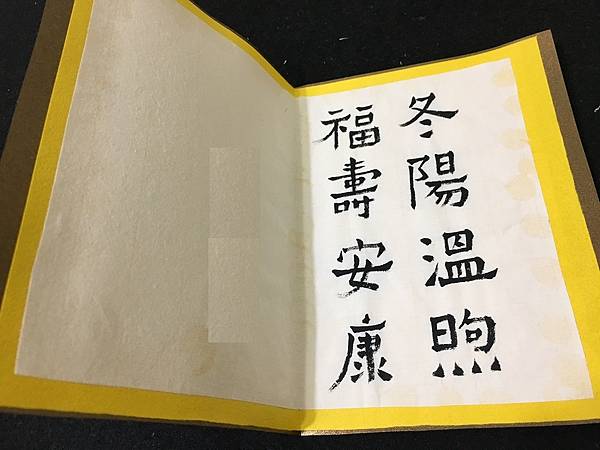 冬陽溫煦
福壽安康